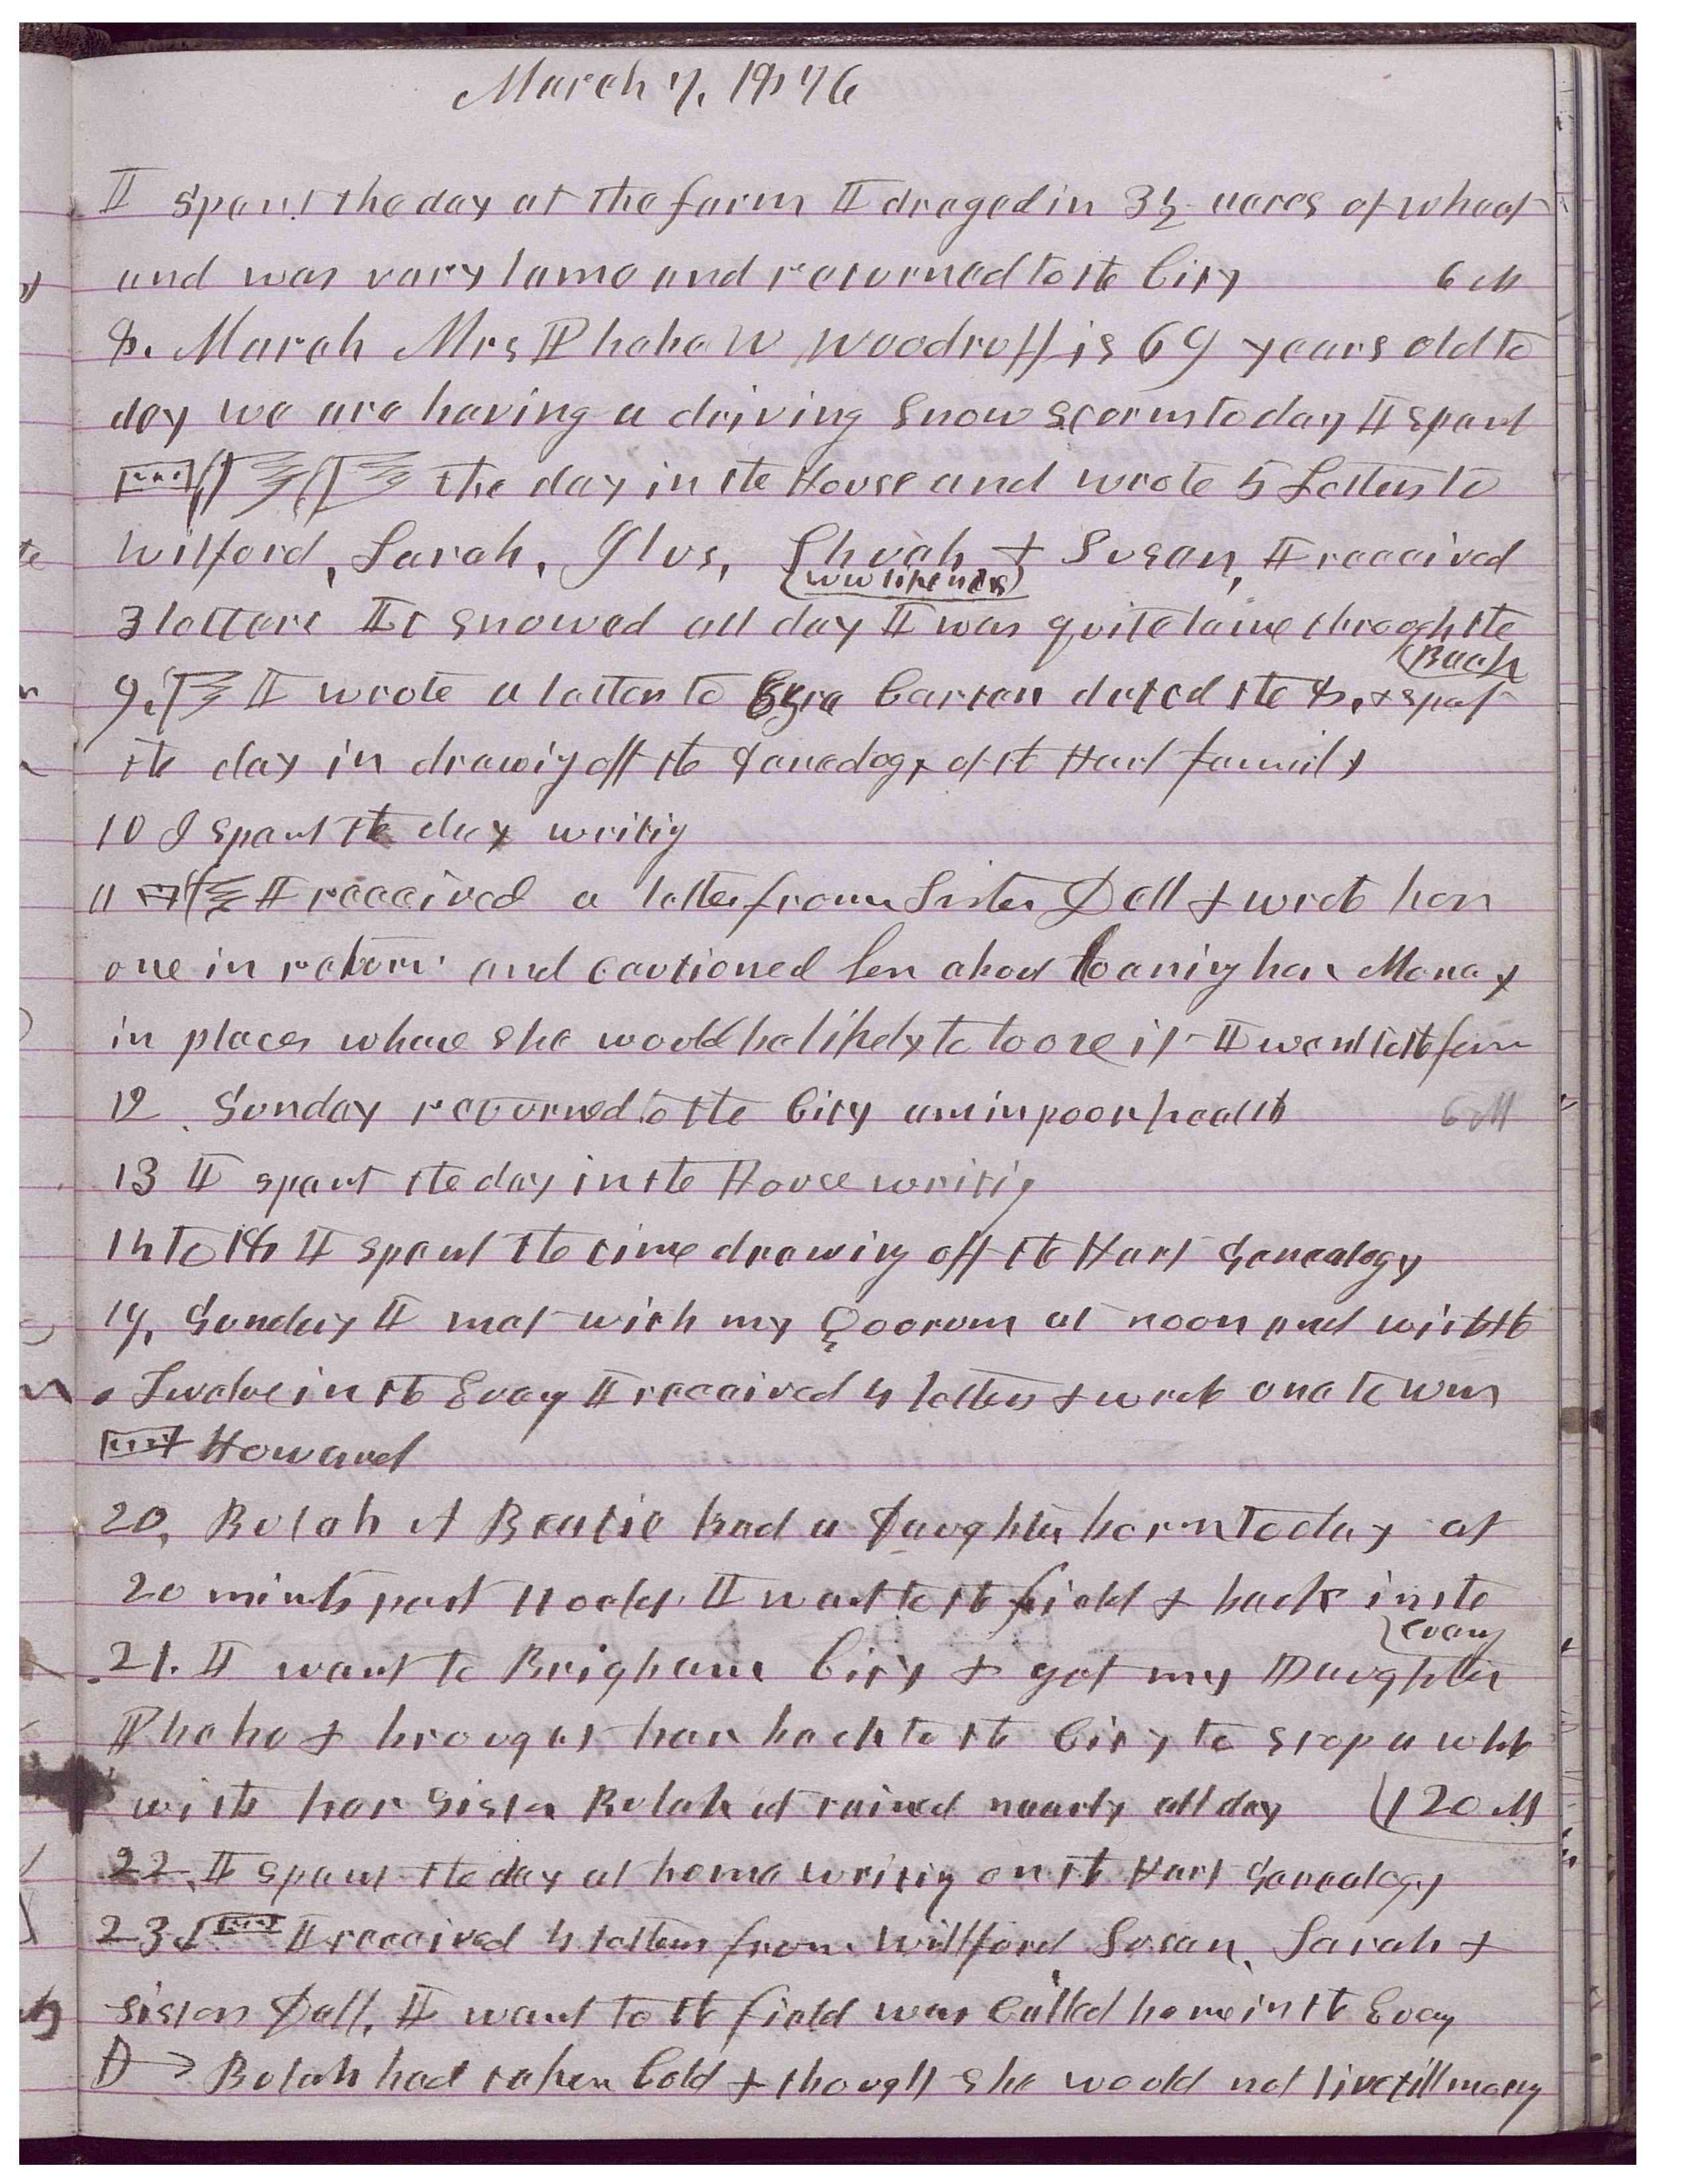 March 7, 1876
I spent the day at the farm I draged in 3½ acres of wheat
and was vary lame and returned to the City 6 M
8. March Mrs Phebe W Woodruff is 69 years old to
day we are having a driving Snow Storm to day I spent
the day in the House and wrote 5 Letters to
Wilford, Sarah, Shuah + Susan, I received
3 letters It snowed all day I was quite lame through the
(Back
9. I wrote a letter to Ezra Carter dated the 8, + spent
the day in drawig off the Genedogy of the Hart family
10 I spent the day writig
11 I received a letter from Sister Dell + wrote her
one in return and cautioned her about Loanig her Money
in places where she would be likely to loose it I went to the farm
12 Sunday returned to the City am in poor health 6 M
13 I spent the day in the House writig
14 to 18 I spent the time drawing off the Hart Genealogy
19, Sunday I met with my Qoorum at noon and with the
Twelve in the Eveng I received 4 letters + wrote one to Wm
Howard
20, Bulah A Beatie had a Daughter born to day at
20 minuts past 11 oclok. I went to the field + back in the
(eveng
21. I went to Brigham City + got my Daughter
Phebe + brought her back to the City to stop a while
with her Sister Bulah it rained nearly all day (120 M
22. I spent the day at home writing on the Hart Genealogy
23. I received 4 letters from Willford Susan, Sarah +
Sister Dall, I went to the field was Called home in the Eveng
D Bulah had taken Cold + thought she would not live till morng